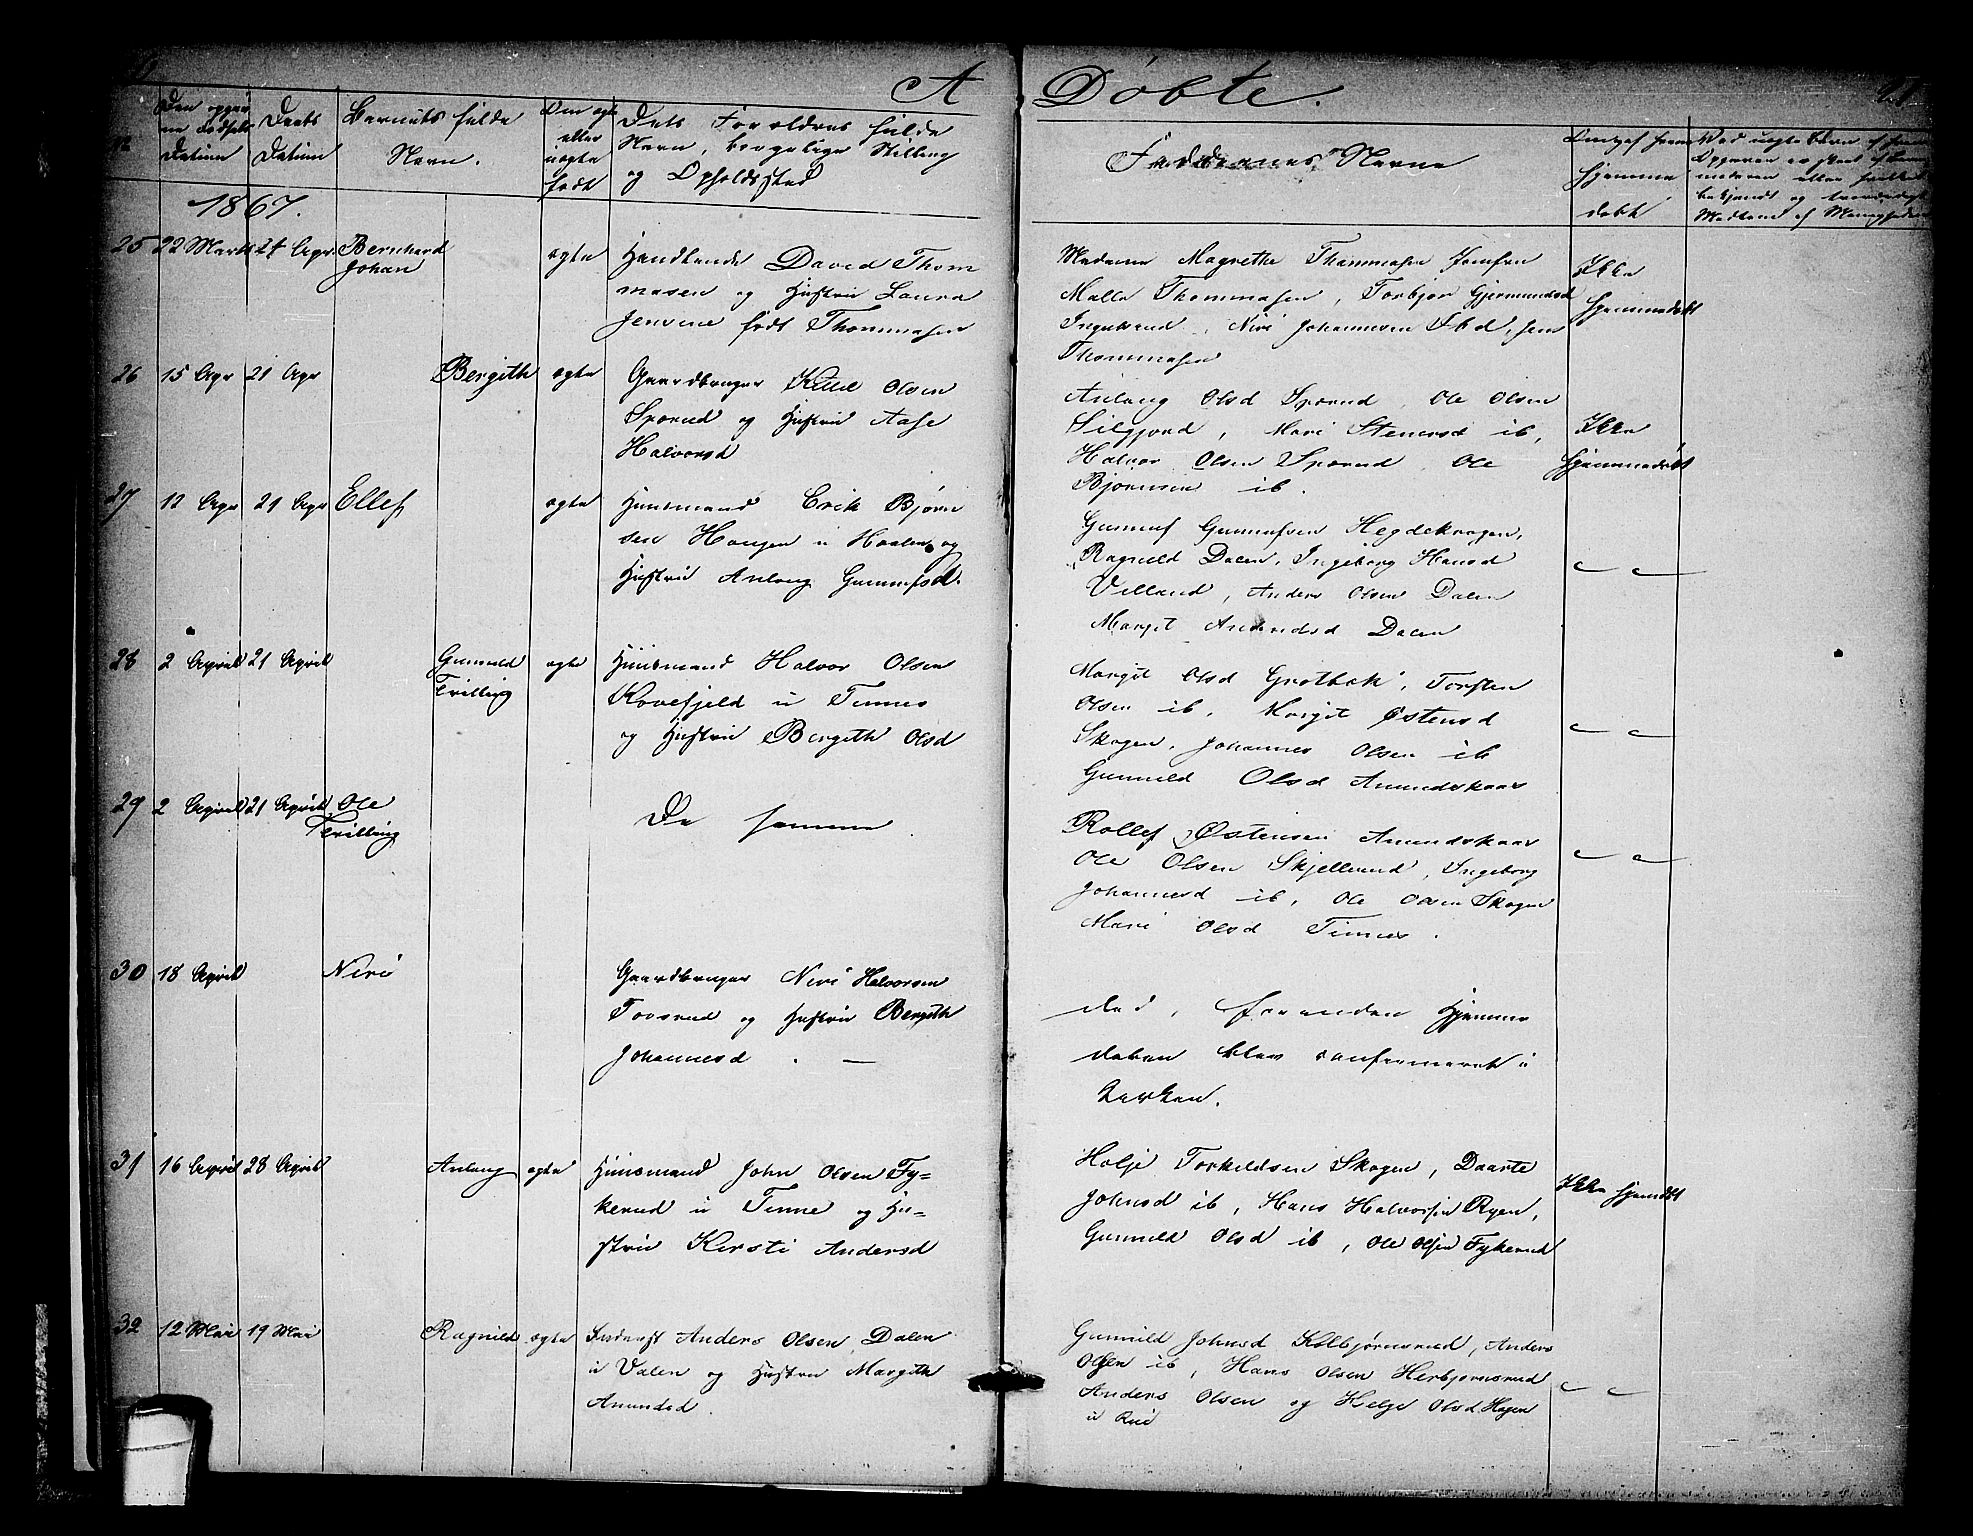 A Døbte.
Dets Forældres fulde
Navn, borgelige Stilling
og Opholdssted
Barnets fulde
Navn.
Daabs
Datum
Faddernes Navne
1867.
25 22 Marts 21 Apr Bernhard
Johan
ægte Handlende David Thom
masen og Hustru Laura
Jensine født Thommasen
Madame Magrethe Thommasen Jomfru
Malla Thommasen, Torbjør Gjermundsd
Ingulsrud, Niri Johannesen Ibd,
Thommasen
Ikke
hjemmedøbt
26 15 Apr 21 Apr Bergith ægte Gaardbruger Kittil Olsen
Sporud og Hustru Aase
Halvorsd
Anlaug Olsd Sporud, Ole Olsen
Siljjord, Mari Stenersd ib,
Halvor Olsen Sporud, Ole
Bjørnsen ib.
Ikke
hjemmedøbt
27 12 Apr 21 Apr Ellef ægte Huusmand Erik Bjørn
sen Haugen u Haalen og
Hustru Anlaug Gunnufsd.
Gunnuf Gunnufsen Hegdekragen,
Ragnild Dalen, Ingeborg Hansd
Villand, Anders Olsen Dalen
Margit Anundsd Dalen
28 2 April 21 April Gunnild
Tvilling
ægte Huusmand Halvor Olsen
Kovefjeld u Tinnes
og Hustru Bergith Olsd
Margit Olsd Grotbæk, Torsten
Olsen ib, Margit Østensd
Skogen, Johannes Olsen ib
Gunnild Olsd Amundskaas
29 2 April 21 April Ole
Tvilling
De samme
Rollef Østensen Amundskaas
Ole Olsen Skjellerud, Ingeborg
Johannesd ib, Ole Olsen Skogen
Mari Olsd Tinnes.
30 18 April Niri
Gaardbruger Niri Halvorsen
Tovsrud og Hustru Bergith
Johannesd. —
død, forenden Hjemme
daaben blev confirmeret i
Kirken.
31 16 April 28 April Anlaug ægte Huusmand John Olsen Fy-
kerud u Tinne og Hu-
stru Kersti Andersd
Holje Torkildsen Skogen, Daarte
Johnsd ib, Hans Halvorsen Ryen,
Gunnild Olsd ib, Ole Olsen Fykerud
Ikke hjemdbt
32 12 Mai 19 Mai Ragnild ægte Inderst Anders Olsen Dalen
u Dalen og Hustru Margith
Anundsd.
Gunnild Johnsd Kolbjørnsrud, Anders
Olsen ib, Hans Olsen Herbjørnsrud
Anders Olsen og Helge Olsd Hagen
u Rue